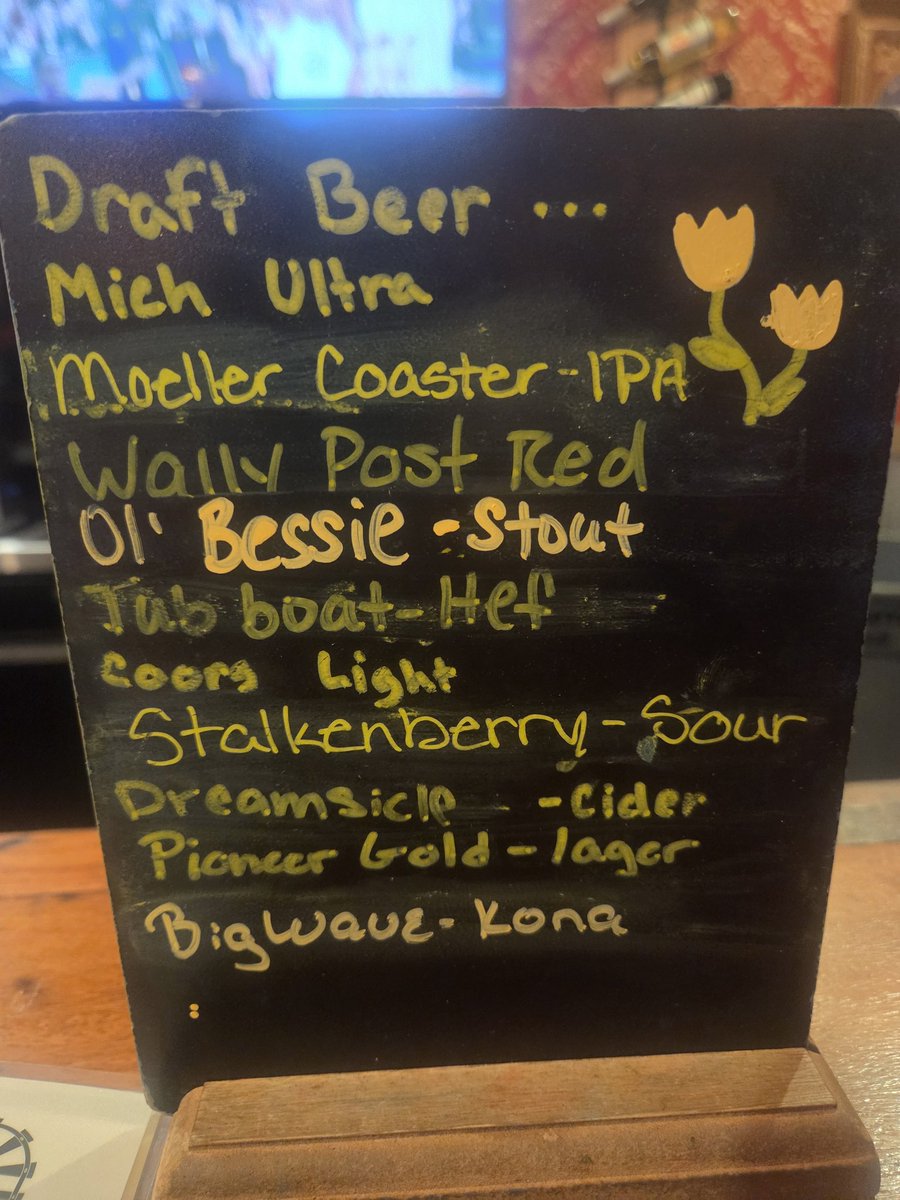 Draft Beer ...
Mich Ultra
Moeller Coaster - IPA
Wally Post Red
Ol' Bessie - Stout
Tub boat - Hef
Coors Light
Stalkenberry - Sour
Dreamsicle - Cider
Pioneer Gold - lager
Big Wave - Kona
: